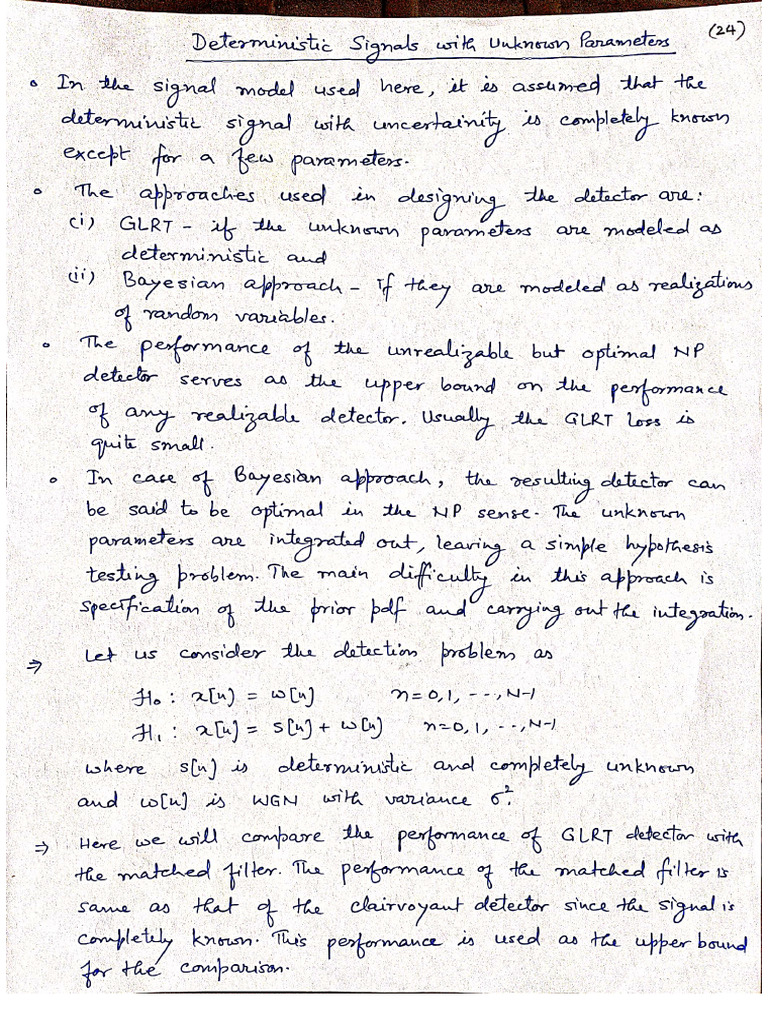 (24)
Deterministic Signals with Unknown Parameters
• In the signal model used here, it is assumed that the
deterministic signal with uncertainity is completely known
except for a few parameters.
• The approaches used in designing the detector are:
(i) GLRT - if the unknown parameters are modeled as
deterministic and
(ii) Bayesian approach - If they are modeled as realizations
of random variables.
• The performance of the unrealizable but optimal NP
detector serves as the upper bound on the performance
of any realizable detector. Usually the GLRT loss is
quite small.
• In case of Bayesian approach, the resulting detector can
be said to be optimal in the NP sense. The unknown
parameters are integrated out, leaving a simple hypothesis
testing problem. The main difficulty in this approach is
specification of the prior pdf and carrying out the integration.
⇒ Let us consider the detection problem as
H₀ : x[n] = w[n] n = 0, 1, ---, N-1
H₁ : x[n] = s[n] + w[n] n = 0, 1, --., N-1
where s[n] is deterministic and completely unknown
and w[n] is WGN with variance σ².
⇒ Here we will compare the performance of GLRT detector with
the matched filter. The performance of the matched filter is
same as that of the clairvoyant detector since the signal is
completely known. This performance is used as the upper bound
for the comparison.